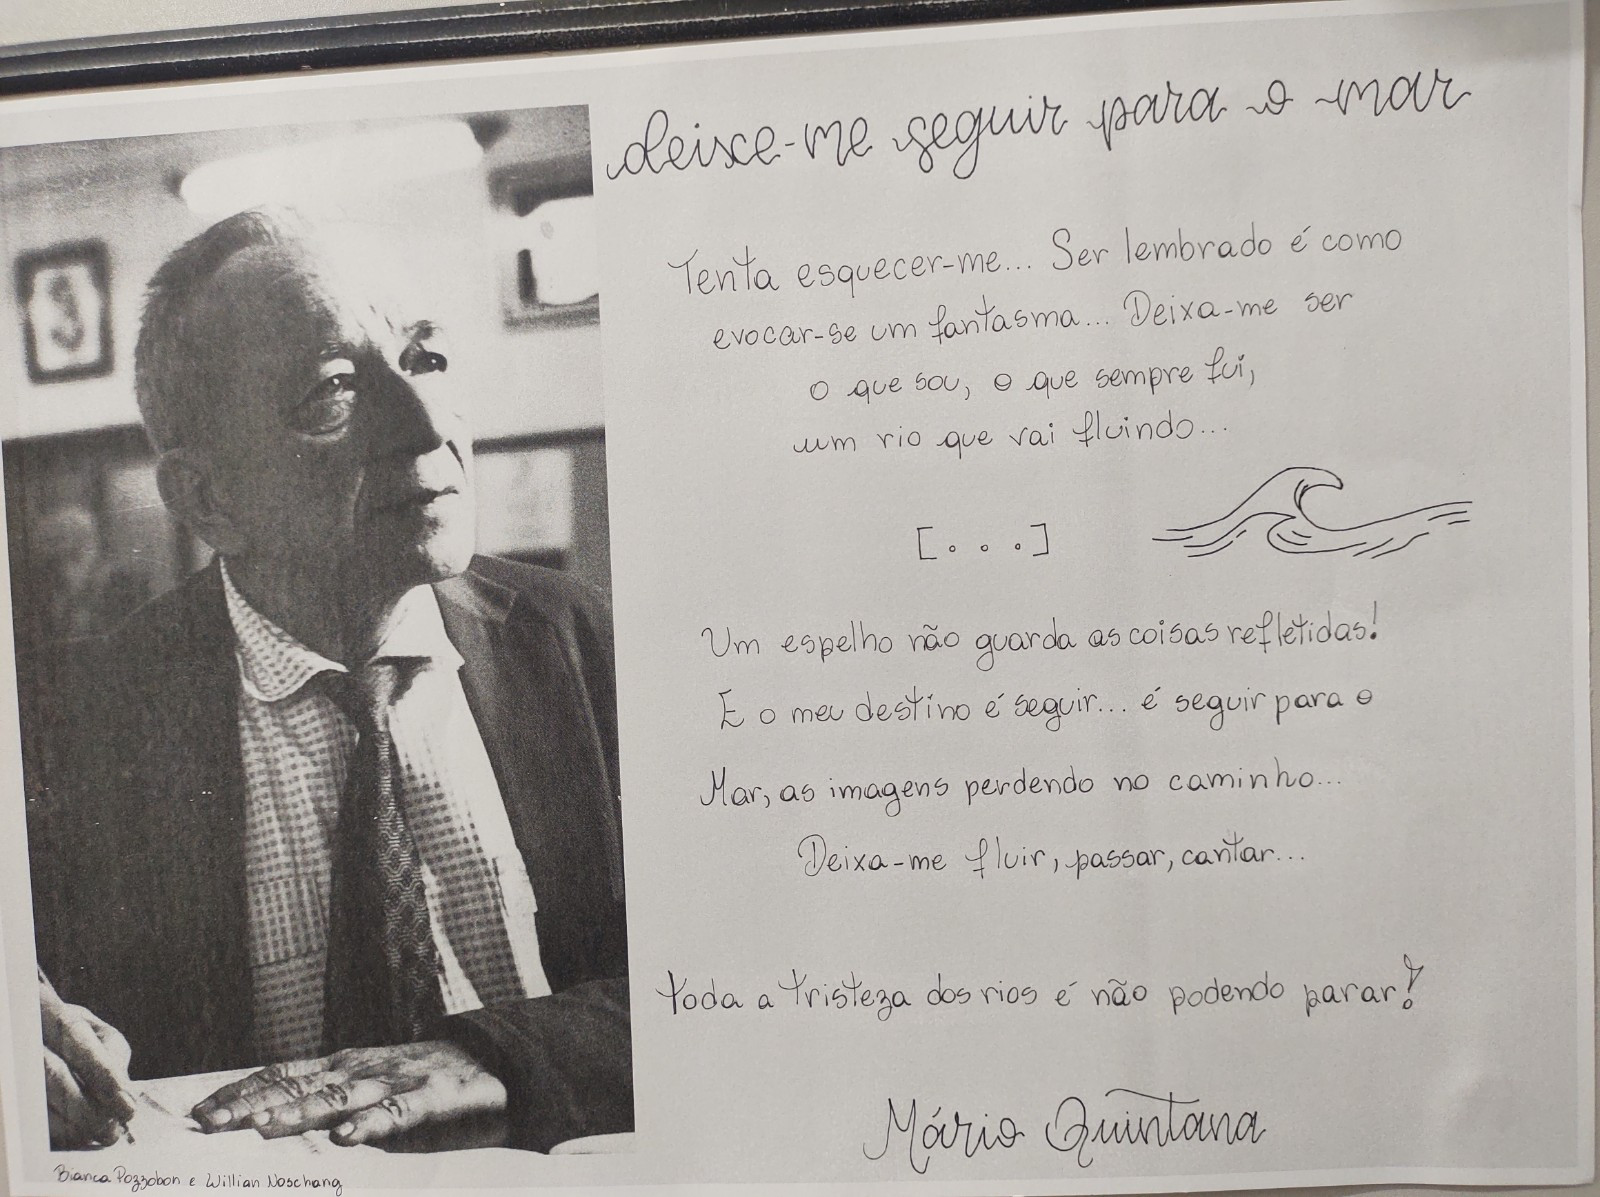 deixe-me seguir para o mar
Tenta esquecer-me... Ser lembrado é como
evocar-se um fantasma... Deixa-me ser
o que sou, o que sempre fui,
um rio que vai fluindo...
[...]
Um espelho não guarda as coisas refletidas!
E o meu destino é seguir... é seguir para o
Mar, as imagens perdendo no caminho...
Deixa-me fluir, passar, cantar...
toda a tristeza dos rios é não podendo parar!
Mário Quintana
Bianca Pozzobon e Willian Noschang